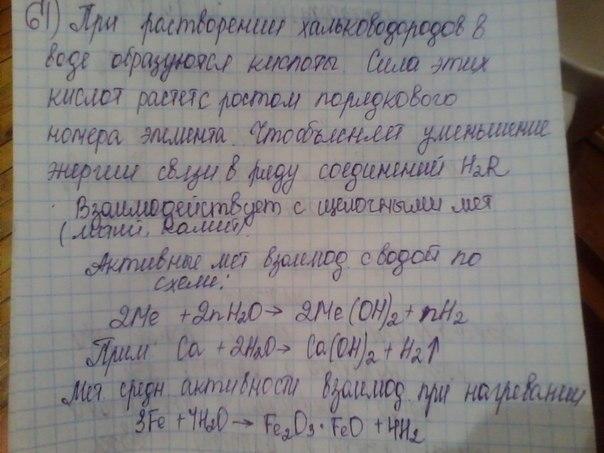 61) При растворении хальководородов в
воде образуются кислоты. Сила этих
кислот растет с ростом порядкового
номера элемента. Что объясняет уменьшение
энергии связи в ряду соединений H₂R
Взаимодействует с щелочными мет
(литий, калий).
Активные мет взаимод с водой по
схеме:
2Me + 2nH₂O → 2Me(OH)₂ + nH₂
Прим: Ca + 2H₂O → Ca(OH)₂ + H₂↑
Мет средн активности взаимод. при нагревании
3Fe + 4H₂O → Fe₂O₃·FeO + 4H₂